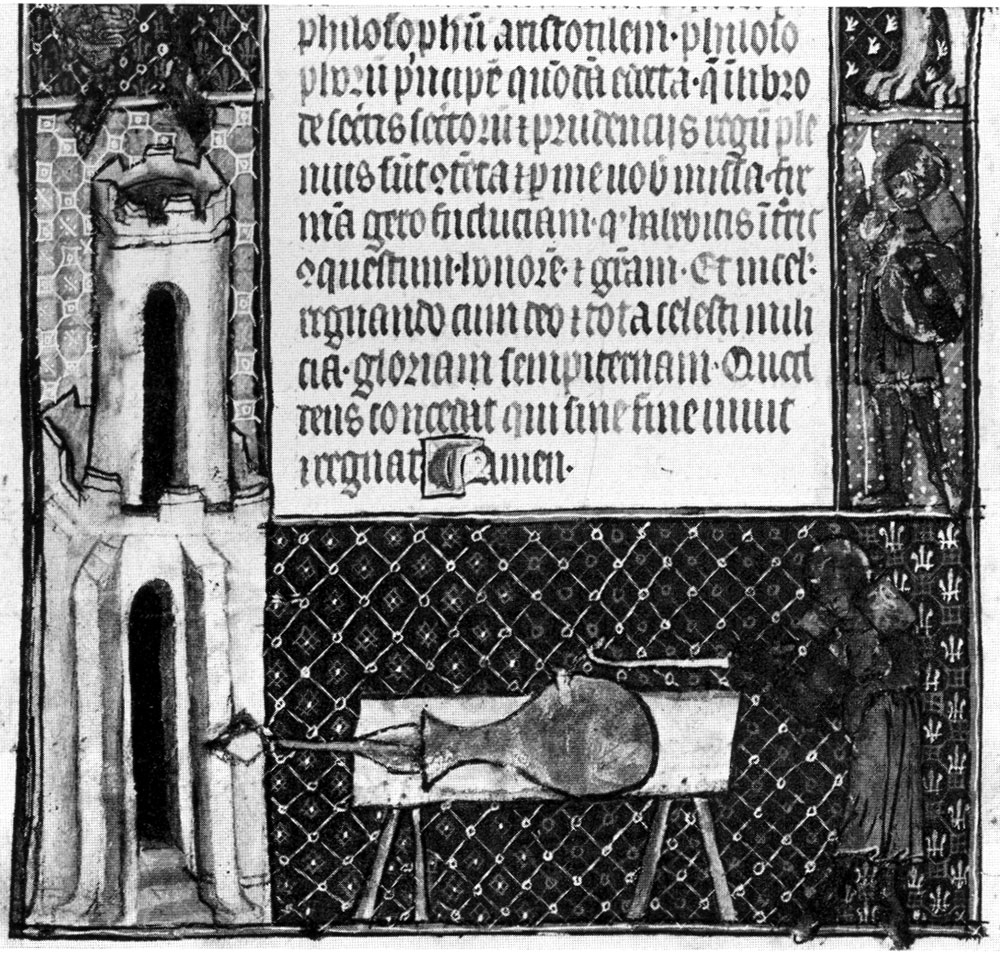 philosophū aristotilem · philoso
phorū p'ncipē quōdā edita · q̄ in libro
de sec'tis sec'torū ⁊ prudencijs regū ple
nius sūt ꝯtēta ⁊ ꝑ me uob missa · fir
mā gero fiduciam · q' habebitis ī t'ris
ꝯquestum · honorē · ⁊ gr̄am · Et in cel'
regnando cum deo ⁊ tota celesti mili
cia · gloriam sempiternam · Quod
deus concedat qui sine fine uiuit
⁊ regnat amen ·